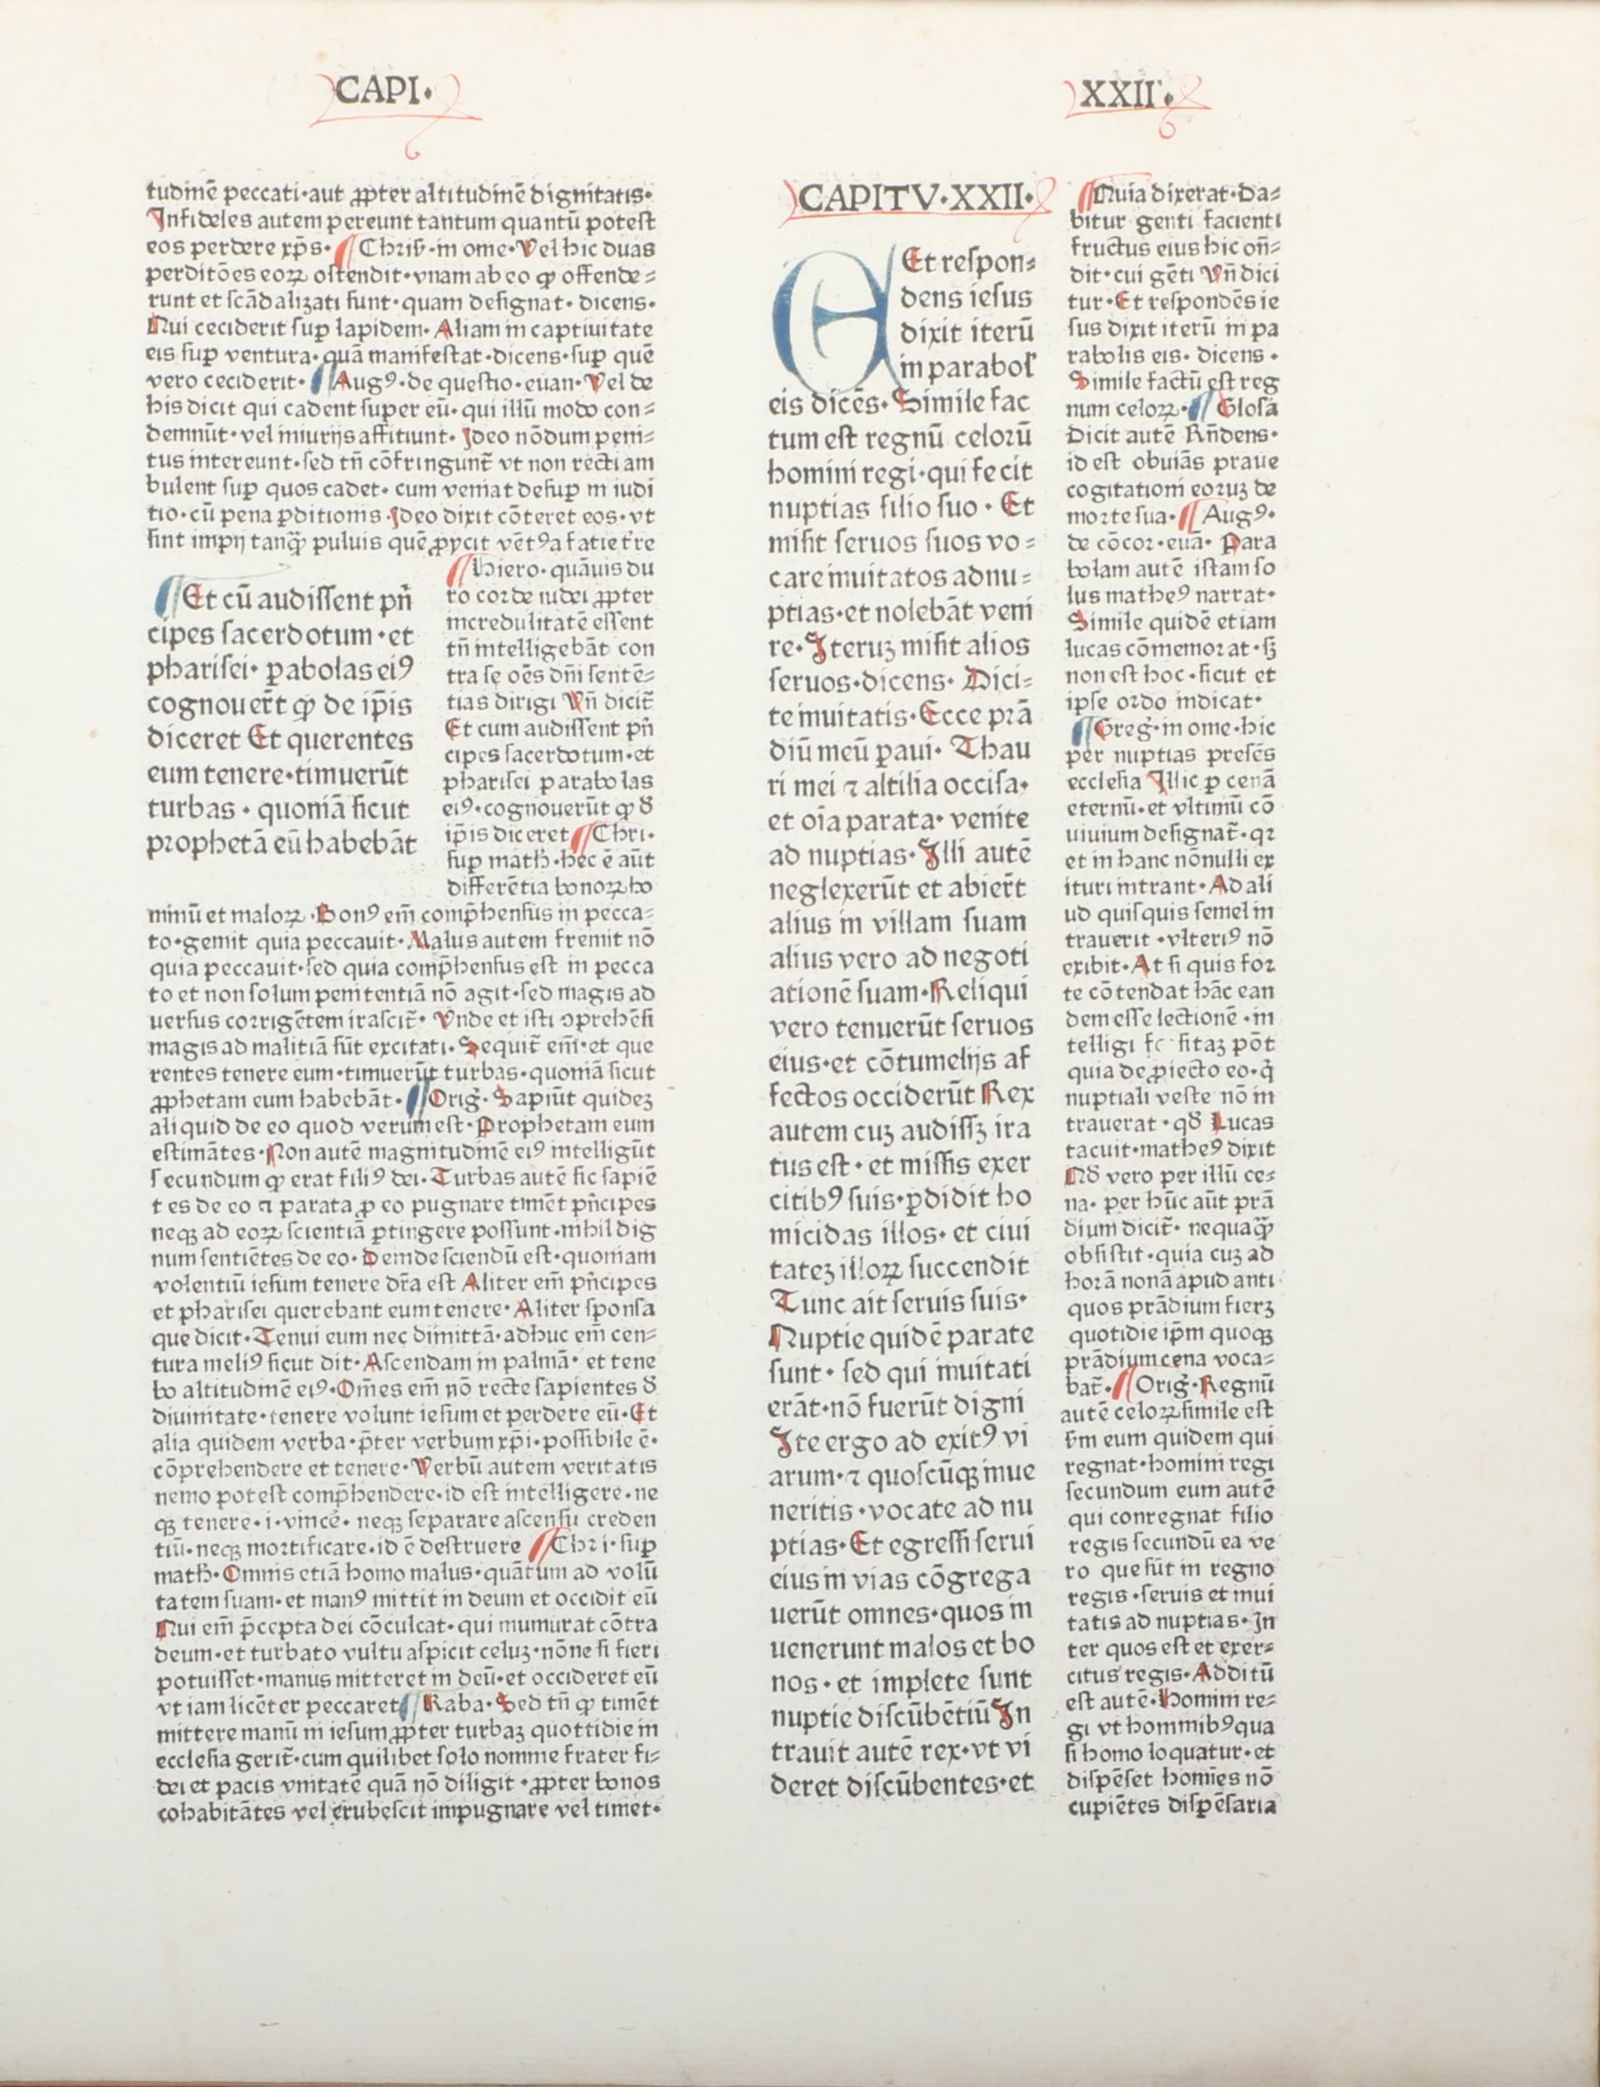 CAPI·
XXII·
tudinē peccati·aut ꝓpter altitudinē dignitatis·
Infideles autem pereunt tantum quantū potest
eos perdere xp̄s· Chris̄·in ome·Vel hic duas
perditōes eoꝝ ostendit·vnam ab eo ꝙ offende=
runt et scādalizati sunt·quam designat·dicens·
Qui ceciderit suꝑ lapidem·Aliam in captiuitate
eis suꝑ ventura·quā manifestat·dicens·suꝑ quē
vero ceciderit· Augꝰ·de questio·euan·Vel de
his dicit qui cadent super eū·qui illū modo con=
demnūt·vel iniurijs affitiunt·Ideo nōdum peni=
tus intereunt·sed tn̄ cōfringunt̄ vt non recti am
bulent suꝑ quos cadet·cum veniat desuꝑ in iudi
tio·cū pena ꝑditionis·Ideo dixit cōteret eos·vt
sint impij tanꝙ̄ puluis quē ꝓycit vētꝰa fatie t̄re
Et cū audissent pn̄
cipes sacerdotum·et
pharisei·ꝑabolas eiꝰ
cognouer̄t ꝙ de ip̄is
diceret Et querentes
eum tenere·timuerūt
turbas·quoniā sicut
prophetā eū habebāt
Hiero·quāuis du
ro corde iudei ꝓpter
incredulitatē essent
tn̄ intelligebāt con
tra se oēs dn̄i sentē=
tias dirigi Vn̄ dicit̄
Et cum audissent pn̄
cipes sacerdotum·et
pharisei parabolas
eiꝰ·cognouerūt ꝙ ð
ip̄is diceret Chri·
suꝑ math̄·hec ē aūt
differētia bonoꝝ ho
minū et maloꝝ·Bonꝰ em̄ comp̄hensus in pecca=
to·gemit quia peccauit·Malus autem fremit nō
quia peccauit·sed quia comp̄hensus est in pecca
to et non solum penitentiā nō agit·sed magis ad
uersus corrigētem irascit̄·Vnde et isti ꝯprehēsi
magis ad malitiā sūt excitati·Sequit̄ em̄·et que
rentes tenere eum·timuerūt turbas·quoniā sicut
ꝓphetam eum habebāt· Oriḡ·Sapiūt quidez
aliquid de eo quod verum est·Prophetam eum
estimātes·Non autē magnitudinē eiꝰ intelligūt
secundum ꝙ erat filiꝰ dei·Turbas autē sic sapiē
tes de eo ⁊ parata ꝓ eo pugnare timēt pn̄cipes
neqꝫ ad eoꝝ scientiā ꝑtingere possunt·nihil dig
num sentiētes de eo·Deinde sciendū est·quoniam
volentiū iesum tenere dr̄a est Aliter em̄ pn̄cipes
et pharisei querebant eum tenere·Aliter sponsa
que dicit·Tenui eum nec dimittā·adhuc em̄ cen=
tura meliꝰ sicut dit·Ascendam in palmā·et tene
bo altitudinē eiꝰ·Om̄es em̄ nō recte sapientes ð
diuinitate·tenere volunt iesum et perdere eū·Et
alia quidem verba·p̄ter verbum xp̄i·possibile ē·
cōprehendere et tenere·Verbū autem veritatis
nemo potest comp̄hendere·id est intelligere·ne
qꝫ tenere·i·vincē·neqꝫ separare ascensu creden
tiū·neqꝫ mortificare·id ē destruere Chri·suꝑ
math̄·Omnis etiā homo malus·quātum ad volū
tatem suam·et manꝰ mittit in deum et occidit eū
Qui em̄ p̄cepta dei cōculcat·qui mumurat cōtra
deum·et turbato vultu aspicit celuꝫ·nōne si fieri
potuisset·manus mitteret in deū·et occideret eū
vt iam licēter peccaret Raba·Sed tn̄ ꝙ timēt
mittere manū in iesum ꝓpter turbaꝫ quottidie in
ecclesia gerit̄·cum quilibet solo nomine frater fi=
dei et pacis vnitatē quā nō diligit·ꝓpter bonos
cohabitātes vel erubescit impugnare vel timet·
CAPITV·XXII·
Et respon=
dens iesus
dixit iterū
in parabol'
eis dicēs·Simile fac
tum est regnū celorū
homini regi·qui fecit
nuptias filio suo·Et
misit seruos suos vo=
care inuitatos ad nu=
ptias·et nolebāt veni
re·Iteruꝫ misit alios
seruos·dicens·Dici=
te inuitatis·Ecce prā
diū meū paui·Thau
ri mei ⁊ altilia occisa·
et oīa parata·venite
ad nuptias·Illi autē
neglexerūt et abier̄t
alius in villam suam
alius vero ad negoti
ationē suam·Reliqui
vero tenuerūt seruos
eius·et cōtumelijs af
fectos occiderūt Rex
autem cuꝫ audissꝫ ira
tus est·et missis exer
citibꝰ suis·ꝑdidit ho
micidas illos·et ciui
tateꝫ illoꝝ succendit
Tunc ait seruis suis·
Nuptie quidē parate
sunt·sed qui inuitati
erāt·nō fuerūt digni
Ite ergo ad exitꝰ vi
arum·⁊ quoscūqꝫ inue
neritis·vocate ad nu
ptias·Et egressi serui
eius in vias cōgrega
uerūt omnes·quos in
uenerunt malos et bo
nos·et implete sunt
nuptie discūbētiū In
trauit autē rex·vt vi
deret discūbentes·et
Quia dixerat·Da=
bitur genti facienti
fructus eius hic on̄=
dit·cui gēti Vn̄ dici
tur·Et respondēs ie
sus dixit iterū in pa
rabolis eis·dicens·
Simile factū est reg
num celoꝝ· Glosa
Dicit autē Rn̄dens·
id est obuiās praue
cogitationi eoruꝫ de
morte sua· Augꝰ·
de cōcor·euā·Para
bolam autē istam so
lus matheꝰ narrat·
Simile quidē etiam
lucas cōmemorat·sꝫ
non est hoc·sicut et
ipse ordo indicat·
Greḡ·in ome·hic
per nuptias presēs
ecclesia Illic ꝑ cenā
eternū·et vltimū cō
uiuium designat̄·qꝛ
et in hanc nōnulli ex
ituri intrant·Ad ali
ud quisquis semel in
trauerit·vlteriꝰ nō
exibit·At si quis for
te cōtendat hāc ean
dem esse lectionē·in
telligi fc sitaꝫ pōt
quia de ꝓiecto eo·q̇
nuptiali veste nō in
trauerat·qð Lucas
tacuit·matheꝰ dixit
Qð vero per illū ce=
na·per hūc aūt prā
dium dicit̄·nequaꝙ̄
obsistit·quia cuꝫ ad
horā nonā apud anti
quos prādium fierꝫ
quotidie ip̄m quoqꝫ
prādium cena voca=
bat̄· Oriḡ·Regnū
autē celoꝝ simile est
s̄m eum quidem qui
regnat·homini regi
secundum eum autē
qui conregnat filio
regis secundū ea ve
ro que sūt in regno
regis·seruis et inui
tatis ad nuptias·In
ter quos est et exer=
citus regis·Additū
est autē·Homini re=
gi vt hominibꝰ qua
si homo loquatur·et
dispēset homīes nō
cupiētes dispēsaria